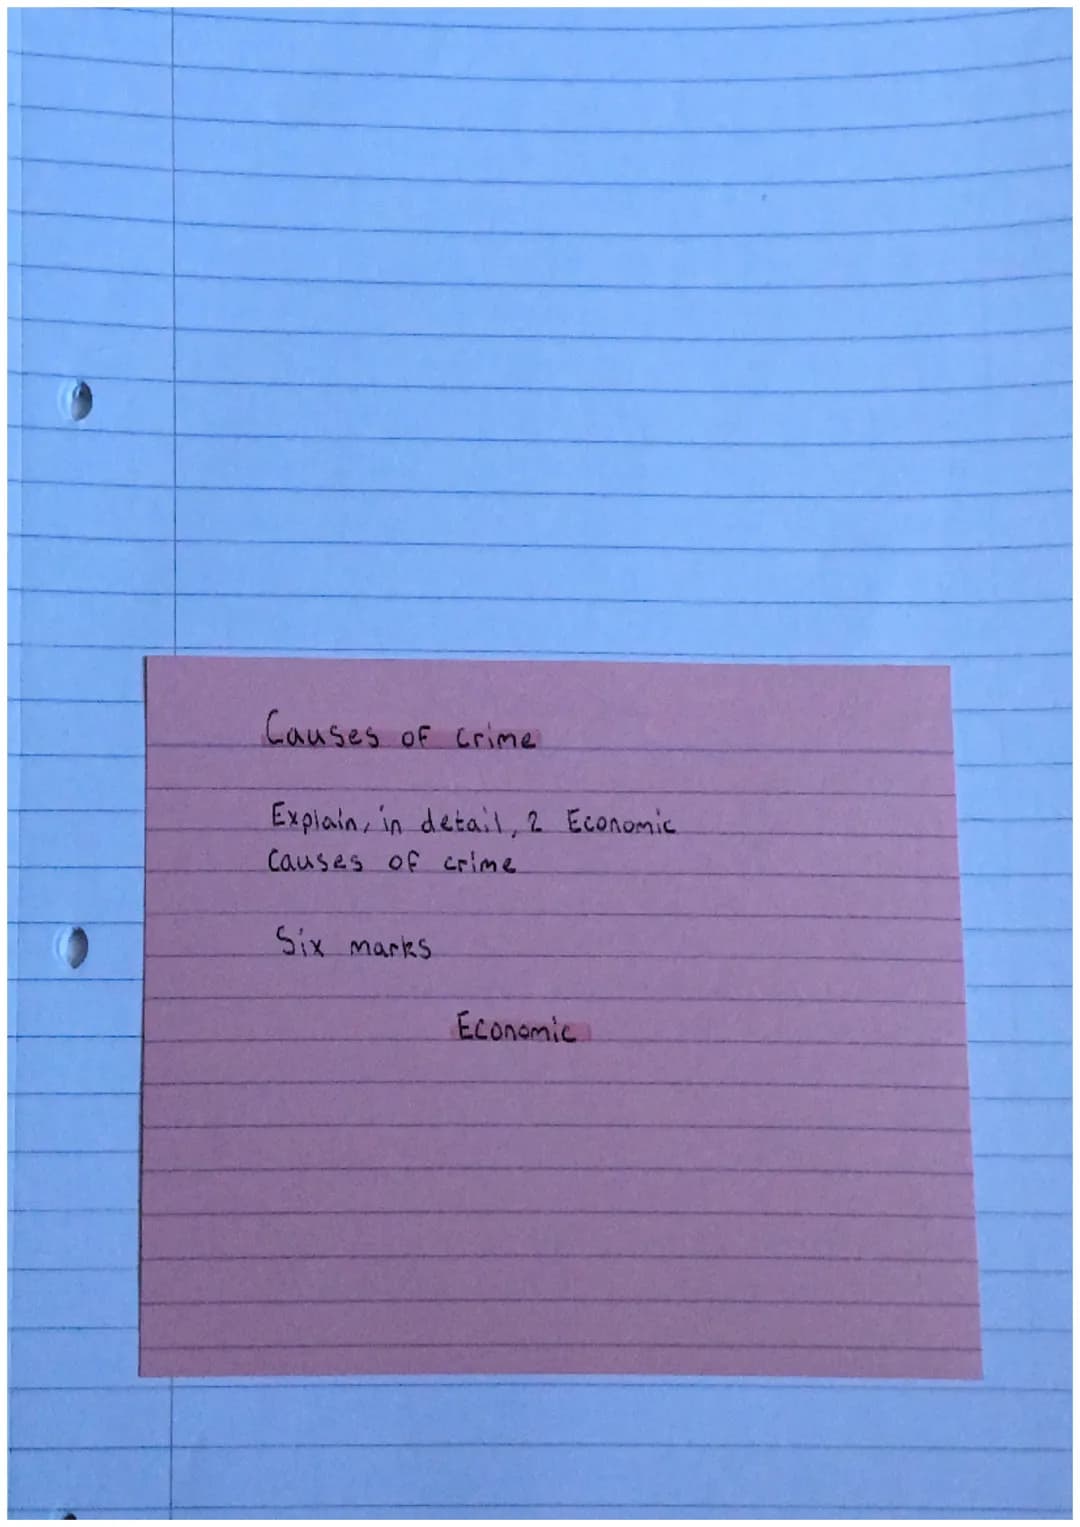 Causes of crime
Explain, in detail, 2 Economic
Causes of crime
Six marks
Economic